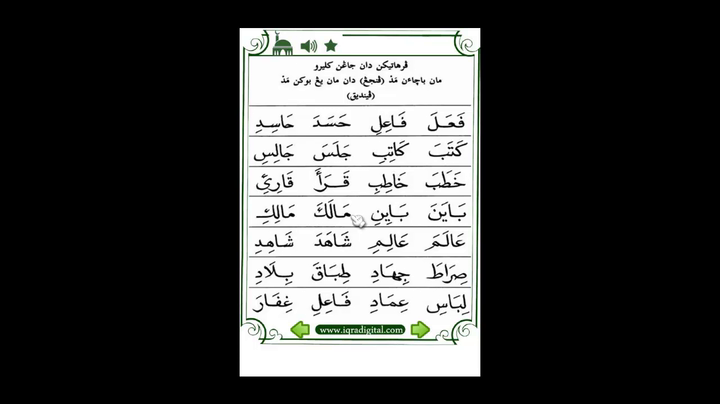 ڤرهاتيکن دان جاڠن کليرو
مان باچاءن مَدْ (ڤنجڠ) دان مان يڠ بوکن مَدْ
(ڤينديق)
فَعَلَ فَاعِلِ حَسَدَ حَاسِدِ
كَتَبَ كَاتِبِ جَلَسَ جَالِسِ
خَطَبَ خَاطِبِ قَرَأَ قَارِئِ
بَايَنَ بَايِنِ مَالَكَ مَالِكِ
عَالَمَ عَالِمِ شَاهَدَ شَاهِدِ
صِرَاطَ جِهَادِ طِبَاقَ بِلَادِ
لِبَاسِ عِمَادِ فَاعِلِ غِفَارَ
www.iqradigital.com